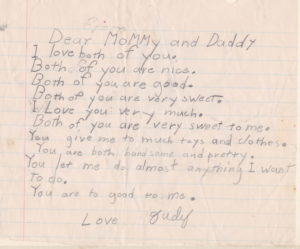 Dear MoMMy and Daddy
I love both of you.
Both of you are nice.
Both of you are good.
Both of you are very sweet.
I Love you very much.
Both of you are very sweet to me.
You give me to much toys and clothes.
You are both handsome and pretty.
You let me do almost anything I want
To do.
You are to good to me.
Love Judy